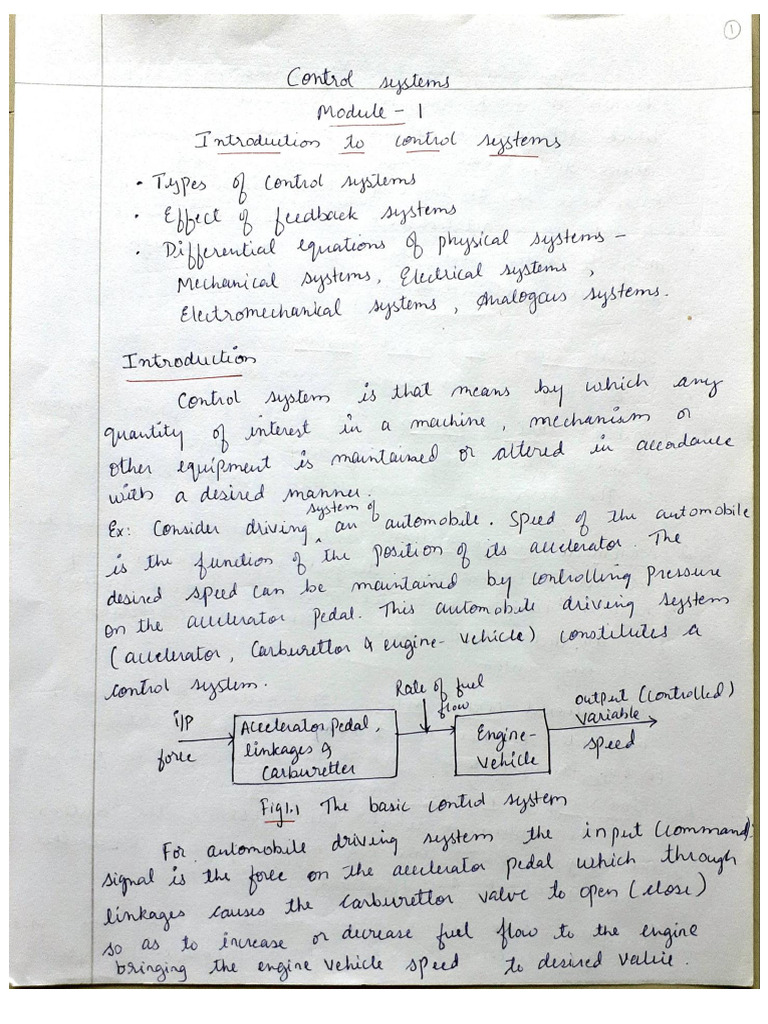 1
Control systems
Module - 1
Introduction to control systems
• Types of control systems
• Effect of feedback systems
• Differential equations of physical systems –
Mechanical systems, Electrical systems,
Electromechanical systems, Analogous systems.
Introduction
Control system is that means by which any
quantity of interest in a machine, mechanism or
other equipment is maintained or altered in accordance
with a desired manner.
system of
Ex: Consider driving ^ an automobile. Speed of the automobile
is the function of the position of its accelerator. The
desired speed can be maintained by controlling pressure
on the accelerator pedal. This automobile driving system
(accelerator, Carburettor & engine-vehicle) constitutes a
control system.
i/p
force
Accelerator pedal,
linkages &
Carburetter
Rate of fuel
flow
Engine-
vehicle
output (controlled)
variable
speed
Fig1.1 The basic control system
For automobile driving system the input (command)
signal is the force on the accelerator pedal which through
linkages causes the carburettor valve to open (close)
so as to increase or decrease fuel flow to the engine
bringing the engine vehicle speed to desired value.